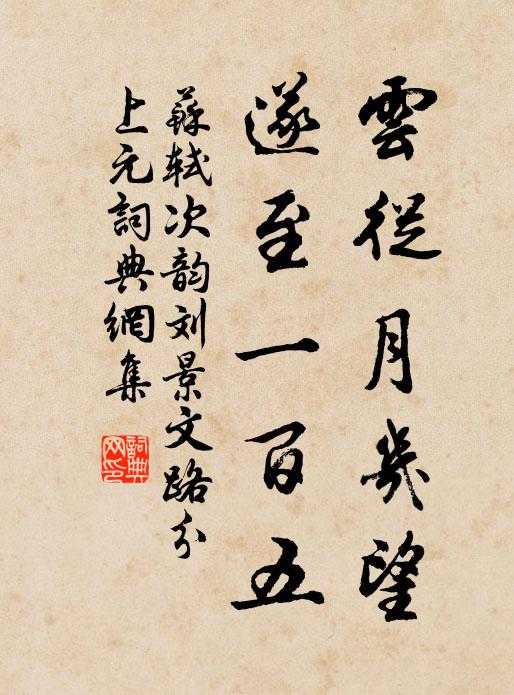 雲從月幾望
遂至一百五
蘇軾次韵刘景文路分
上元詞典網集
詞典网印